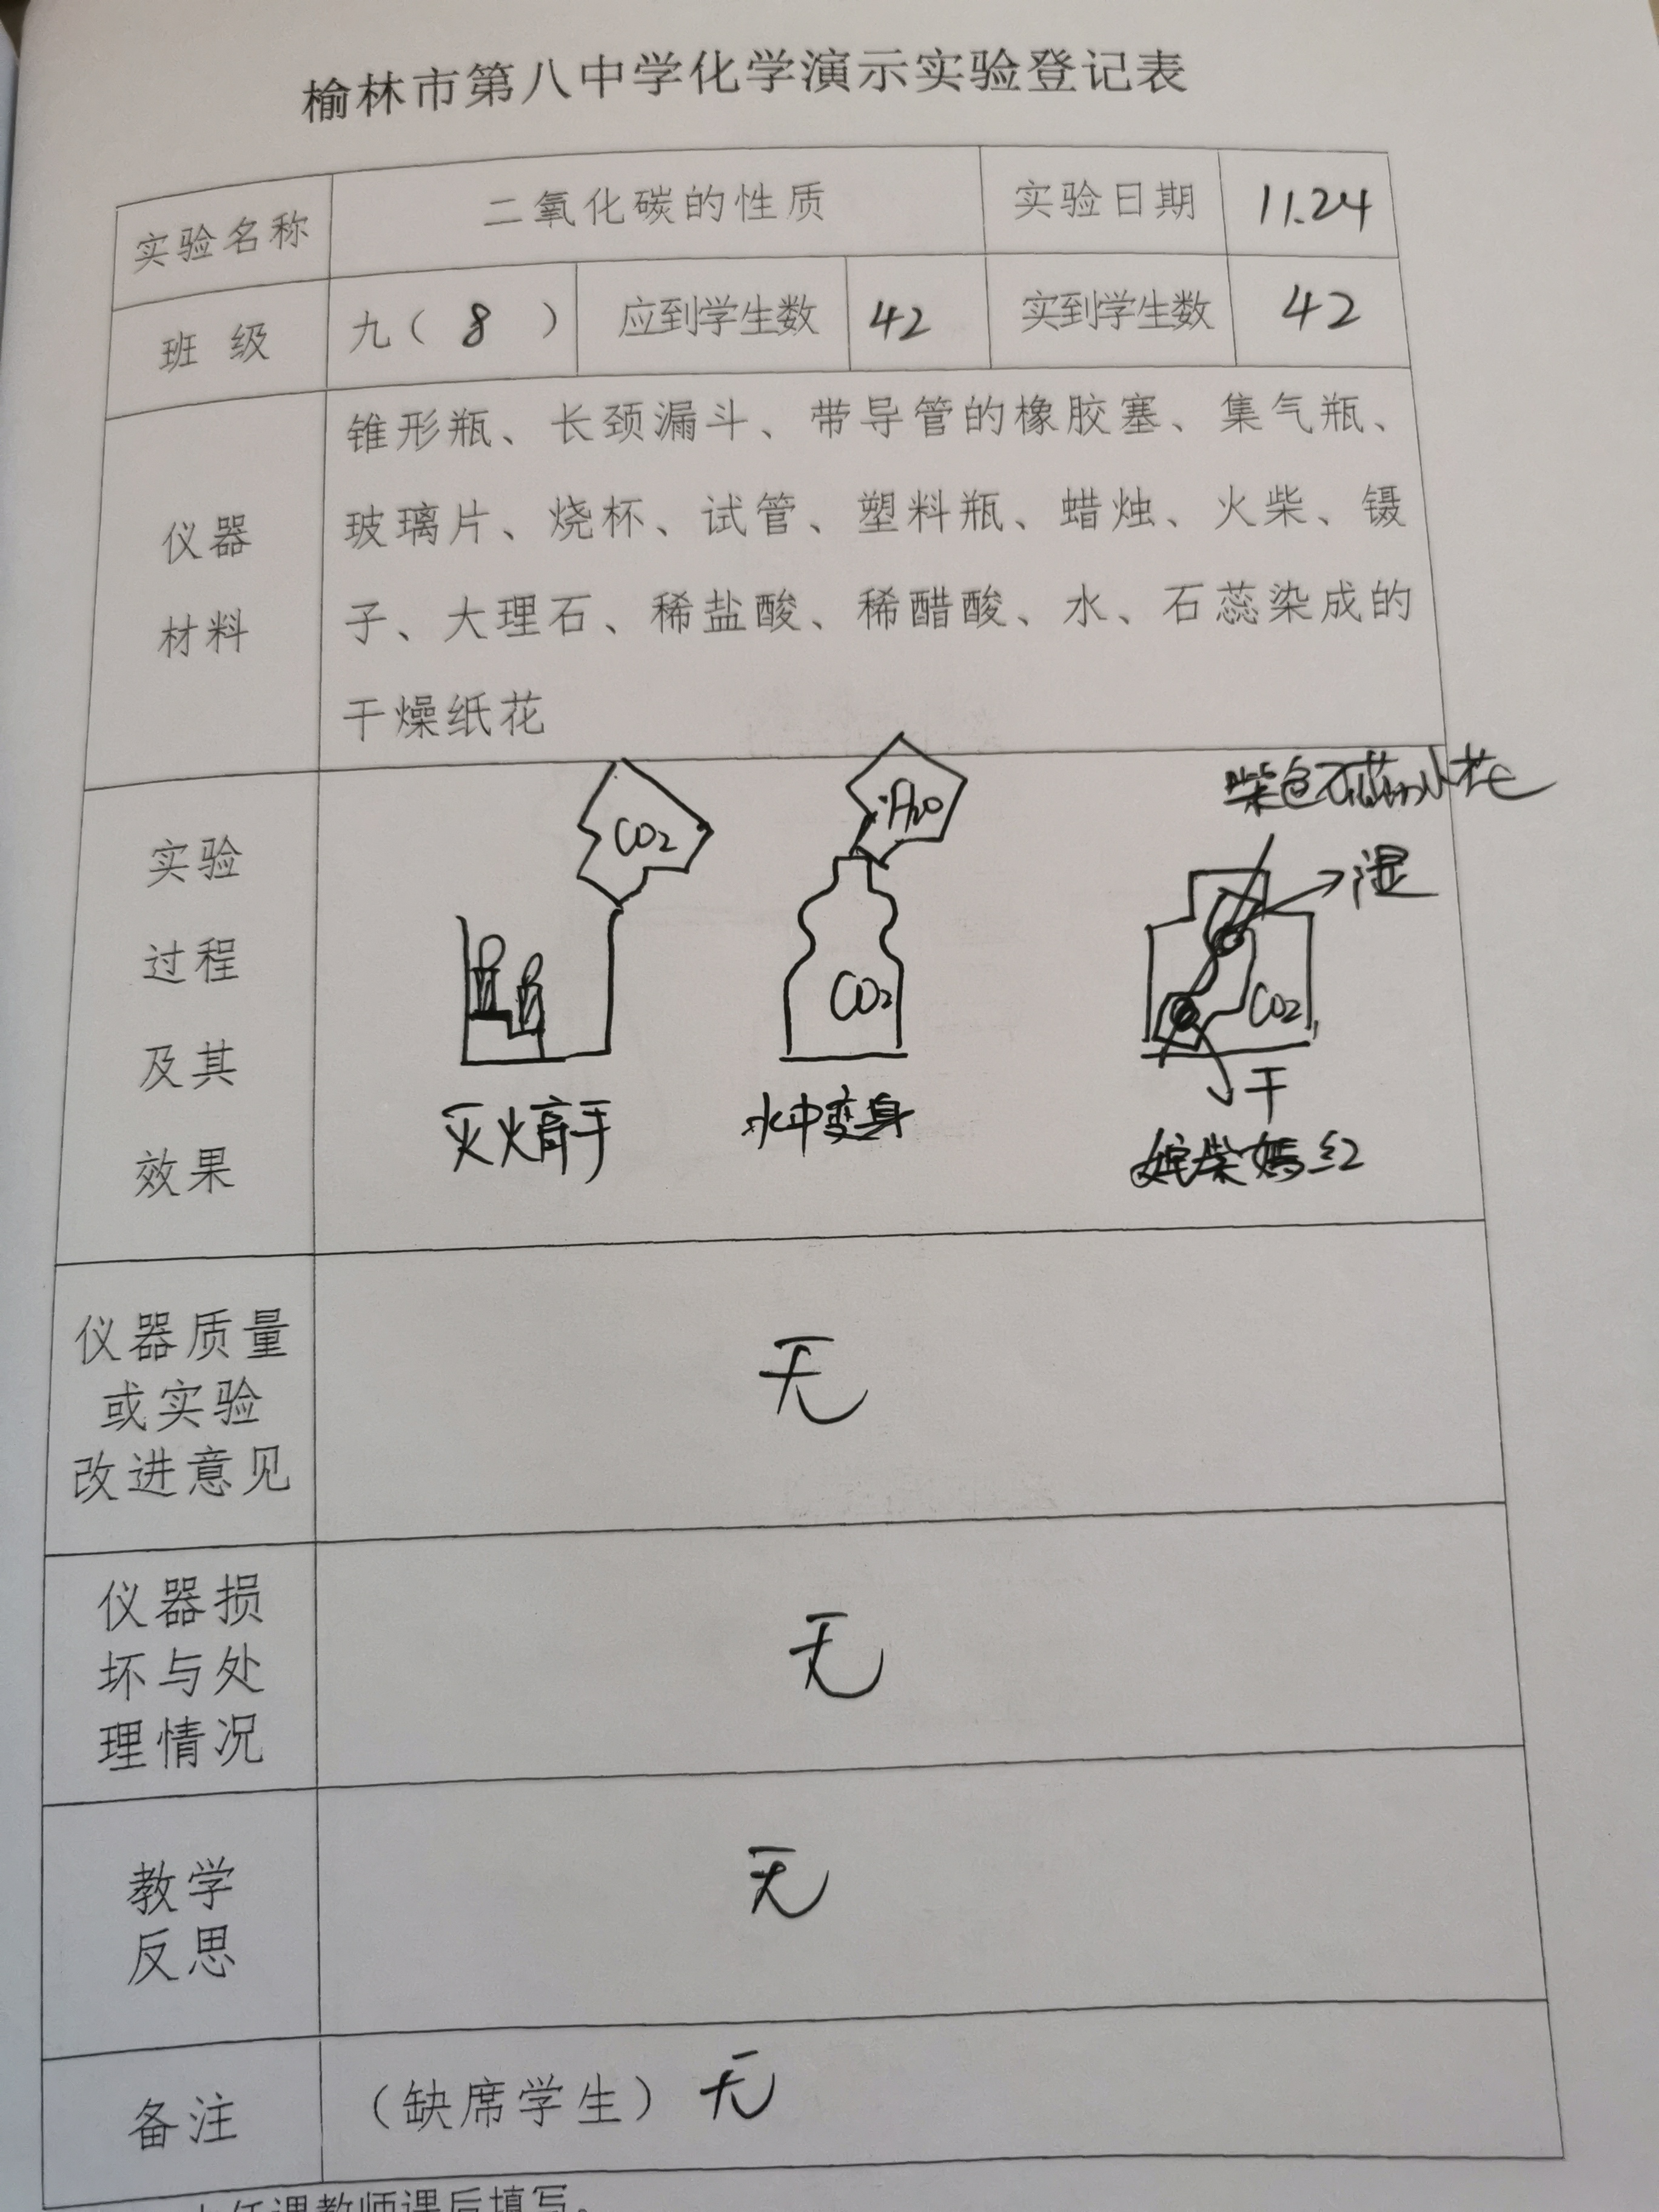 榆林市第八中学化学演示实验登记表
实验名称 二氧化碳的性质 实验日期 11.24
班级 九（8） 应到学生数 42 实到学生数 42
仪器
材料
锥形瓶、长颈漏斗、带导管的橡胶塞、集气瓶、
玻璃片、烧杯、试管、塑料瓶、蜡烛、火柴、镊
子、大理石、稀盐酸、稀醋酸、水、石蕊染成的
干燥纸花
实验
过程
及其
效果
CO2
灭火高手
H2O
CO2
水中变身
紫色石蕊小花
湿
CO2
干
姹紫嫣红
仪器质量
或实验
改进意见
无
仪器损
坏与处
理情况
无
教学
反思
无
备注 （缺席学生）无
任课教师课后填写。